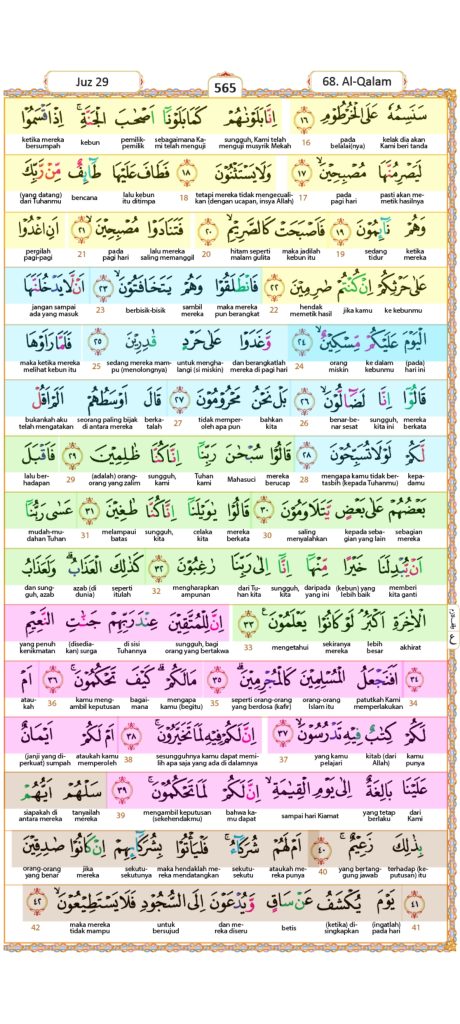 Juz 29
565
68. Al-Qalam
سَنَسِمُهٗ عَلَى الْخُرْطُوْمِ ١٦ اِنَّا بَلَوْنٰهُمْ كَمَا بَلَوْنَآ اَصْحٰبَ الْجَنَّةِۚ اِذْ اَقْسَمُوْا
ketika mereka kebun pemilik- sebagaimana Ka- sungguh, Kami telah pada kelak dia akan
bersumpah pemilik mi telah menguji menguji musyrik Mekah 16 belalai(nya) Kami beri tanda
لَيَصْرِمُنَّهَا مُصْبِحِيْنَۙ ١٧ وَلَا يَسْتَثْنُوْنَ ١٨ فَطَافَ عَلَيْهَا طَاۤىِٕفٌ مِّنْ رَّبِّكَ
(yang datang) bencana lalu kebun tetapi mereka tidak mengecuali- pada pasti akan me-
dari Tuhanmu itu ditimpa 18 kan (dengan ucapan, insya Allah) 17 pagi hari metik hasilnya
وَهُمْ نَاۤىِٕمُوْنَ ١٩ فَاَصْبَحَتْ كَالصَّرِيْمِۙ ٢٠ فَتَنَادَوْا مُصْبِحِيْنَۙ ٢١ اَنِ اغْدُوْا
pergilah pada lalu mereka hitam seperti maka jadilah sedang ketika
pagi-pagi 21 pagi hari saling memanggil 20 malam gulita kebun itu 19 tidur mereka
عَلٰى حَرْثِكُمْ اِنْ كُنْتُمْ صٰرِمِيْنَ ٢٢ فَانْطَلَقُوْا وَهُمْ يَتَخَافَتُوْنَۙ ٢٣ اَنْ لَّا يَدْخُلَنَّهَا
jangan sampai sambil maka mereka hendak jika kamu ke kebunmu
ada yang masuk 23 berbisik-bisik mereka pun berangkat 22 memetik hasil
الْيَوْمَ عَلَيْكُمْ مِّسْكِيْنٌۙ ٢٤ وَّغَدَوْا عَلٰى حَرْدٍ قٰدِرِيْنَ ٢٥ فَلَمَّا رَاَوْهَا
maka ketika mereka sedang mereka mam- untuk mengha- dan berangkatlah orang ke dalam (pada)
melihat kebun itu 25 pu (menolongnya) langi (si miskin) mereka di pagi hari 24 miskin kebunmu hari ini
قَالُوْٓا اِنَّا لَضَاۤلُّوْنَۙ ٢٦ بَلْ نَحْنُ مَحْرُوْمُوْنَ ٢٧ قَالَ اَوْسَطُهُمْ اَلَمْ اَقُلْ
bukankah aku seorang paling bijak berka- tidak memper- bahkan benar-be- sungguh, mereka
telah mengatakan di antara mereka talah 27 oleh apa pun kita 26 nar sesat kita ini berkata
لَّكُمْ لَوْلَا تُسَبِّحُوْنَ ٢٨ قَالُوْا سُبْحٰنَ رَبِّنَآ اِنَّا كُنَّا ظٰلِمِيْنَ ٢٩ فَاَقْبَلَ
lalu ber- (adalah) orang- sungguh, Tuhan Mahasuci mereka mengapa kamu tidak ber- kepa-
hadapan 29 orang yang zalim kami kami berucap 28 tasbih (kepada Tuhanmu) damu
بَعْضُهُمْ عَلٰى بَعْضٍ يَّتَلَاوَمُوْنَ ٣٠ قَالُوْا يٰوَيْلَنَآ اِنَّا كُنَّا طٰغِيْنَ ٣١ عَسٰى رَبُّنَآ
mudah-mu- melampaui sungguh, celaka mereka saling kepada seba- sebagian
dahan Tuhan 31 batas kita kita berkata 30 menyalahkan gian yang lain mereka
اَنْ يُّبْدِلَنَا خَيْرًا مِّنْهَآ اِنَّآ اِلٰى رَبِّنَا رٰغِبُوْنَ ٣٢ كَذٰلِكَ الْعَذَابُۗ وَلَعَذَابُ
dan sung- azab (di seperti mengharapkan dari Tu- sungguh, daripada (kebun) yang memberi
guh, azab dunia) itulah 32 ampunan han kita kita yang ini lebih baik kita ganti
الْاٰخِرَةِ اَكْبَرُۘ لَوْ كَانُوْا يَعْلَمُوْنَ ٣٣ اِنَّ لِلْمُتَّقِيْنَ عِنْدَ رَبِّهِمْ جَنّٰتِ النَّعِيْمِ
yang penuh (disedia- di sisi sungguh, bagi mengetahui sekiranya lebih akhirat
kenikmatan kan) surga Tuhannya orang yang bertakwa 33 mereka besar
اَفَنَجْعَلُ الْمُسْلِمِيْنَ كَالْمُجْرِمِيْنَۗ ٣٥ مَا لَكُمْۗ كَيْفَ تَحْكُمُوْنَۚ ٣٦ اَمْ ٣٤
atau- kamu meng- bagai- mengapa seperti orang-orang orang-orang patutkah Kami
kah 36 ambil keputusan mana kamu (begitu) 35 yang berdosa (kafir) Islam itu memperlakukan 34
لَكُمْ كِتٰبٌ فِيْهِ تَدْرُسُوْنَۙ ٣٧ اِنَّ لَكُمْ فِيْهِ لَمَا تَخَيَّرُوْنَۚ ٣٨ اَمْ لَكُمْ اَيْمَانٌ
(janji yang di- ataukah kamu sesungguhnya kamu dapat memi- yang kamu kitab (dari kamu
perkuat) sumpah memperoleh 38 lih apa saja yang ada di dalamnya 37 pelajari Allah) punya
عَلَيْنَا بَالِغَةٌ اِلٰى يَوْمِ الْقِيٰمَةِۙ اِنَّ لَكُمْ لَمَا تَحْكُمُوْنَۚ ٣٩ سَلْهُمْ اَيُّهُمْ
siapakah di tanyailah mengambil keputusan bahwa ka- sampai hari Kiamat yang tetap dari
antara mereka mereka 39 (sekehendakmu) mu dapat berlaku Kami
بِذٰلِكَ زَعِيْمٌۚ ٤٠ اَمْ لَهُمْ شُرَكَاۤءُۚ فَلْيَأْتُوْا بِشُرَكَاۤىِٕهِمْ اِنْ كَانُوْا صٰدِقِيْنَ
orang-orang jika sekutu- maka hendaklah me- sekutu- ataukah me- yang bertang- terhadap (ke-
yang benar mereka sekutunya reka mendatangkan sekutu reka punya 40 gung jawab putusan) itu
يَوْمَ يُكْشَفُ عَنْ سَاقٍ وَّيُدْعَوْنَ اِلَى السُّجُوْدِ فَلَا يَسْتَطِيْعُوْنَۙ ٤٢ ٤١
maka mereka untuk dan me- betis (ketika) di- (ingatlah)
42 tidak mampu bersujud reka diseru singkapkan pada hari 41